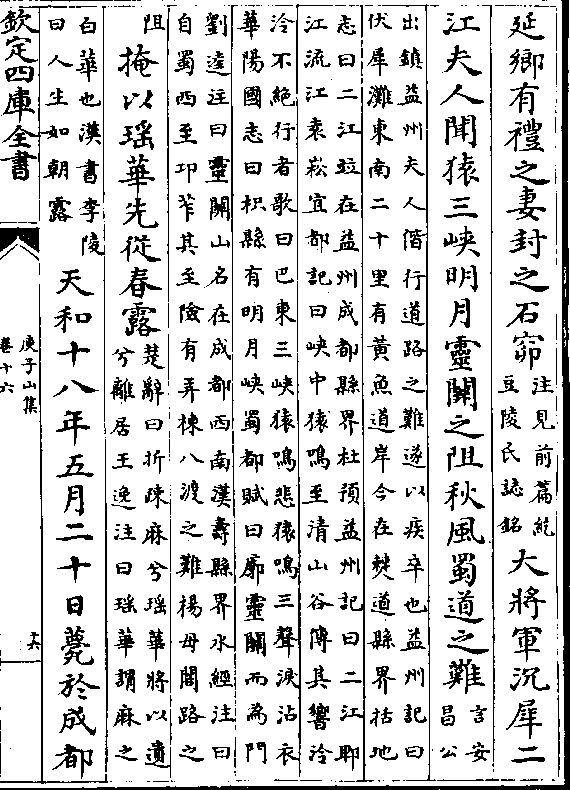 延鄉有禮之妻封之石窌注見前篇紇豆陵氏誌銘大將軍沉犀二
江夫人聞猿三峽明月靈關之阻秋風蜀道之難言安昌公
出鎮益州夫人偕行道路之難遂以疾卒也益州記曰
伏犀灘東南二十里有黃魚道岸今在僰道縣界括地
志曰二江竝在益州成都縣界杜預益州記曰二江郫
江流江袁崧宜都記曰峽中猿鳴至清山谷傳其響泠
泠不絕行者歌曰巴東三峽猿鳴悲猿鳴三聲淚沾衣
華陽國志曰枳縣有明月峽蜀都賦曰廓靈關而為門
劉逵注曰靈關山名在成都西南漢壽縣界水經注曰
自蜀西至卭筰其至險有弄棟八渡之難楊母閣路之
阻掩以瑶華先從春露楚辭曰折疎麻兮瑶華將以遺兮離居王逸注曰瑶華謂麻之
白華也漢書李陵曰人生如朝露天和十八年五月二十日薨於成都
欽定四庫全書
庾子山集
卷十六
十六